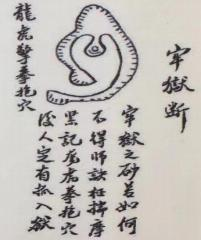 牢獄断
牢獄之砂若如何
不得師訣枉揣摩
黑記龍虎拳抱穴
後人定有孤入獄
龍虎擎拳抱穴